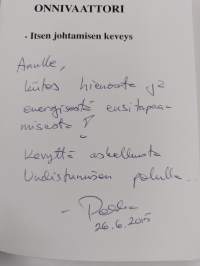 ONNIVAATTORI
- Itsen johtamisen keveys
Anulle,
kiitos hienosta ja
energisestä ensitapaa-
misesta!
Kevyttä askellusta
Uudistumisen polulla...
- Pekka
26.6.2015